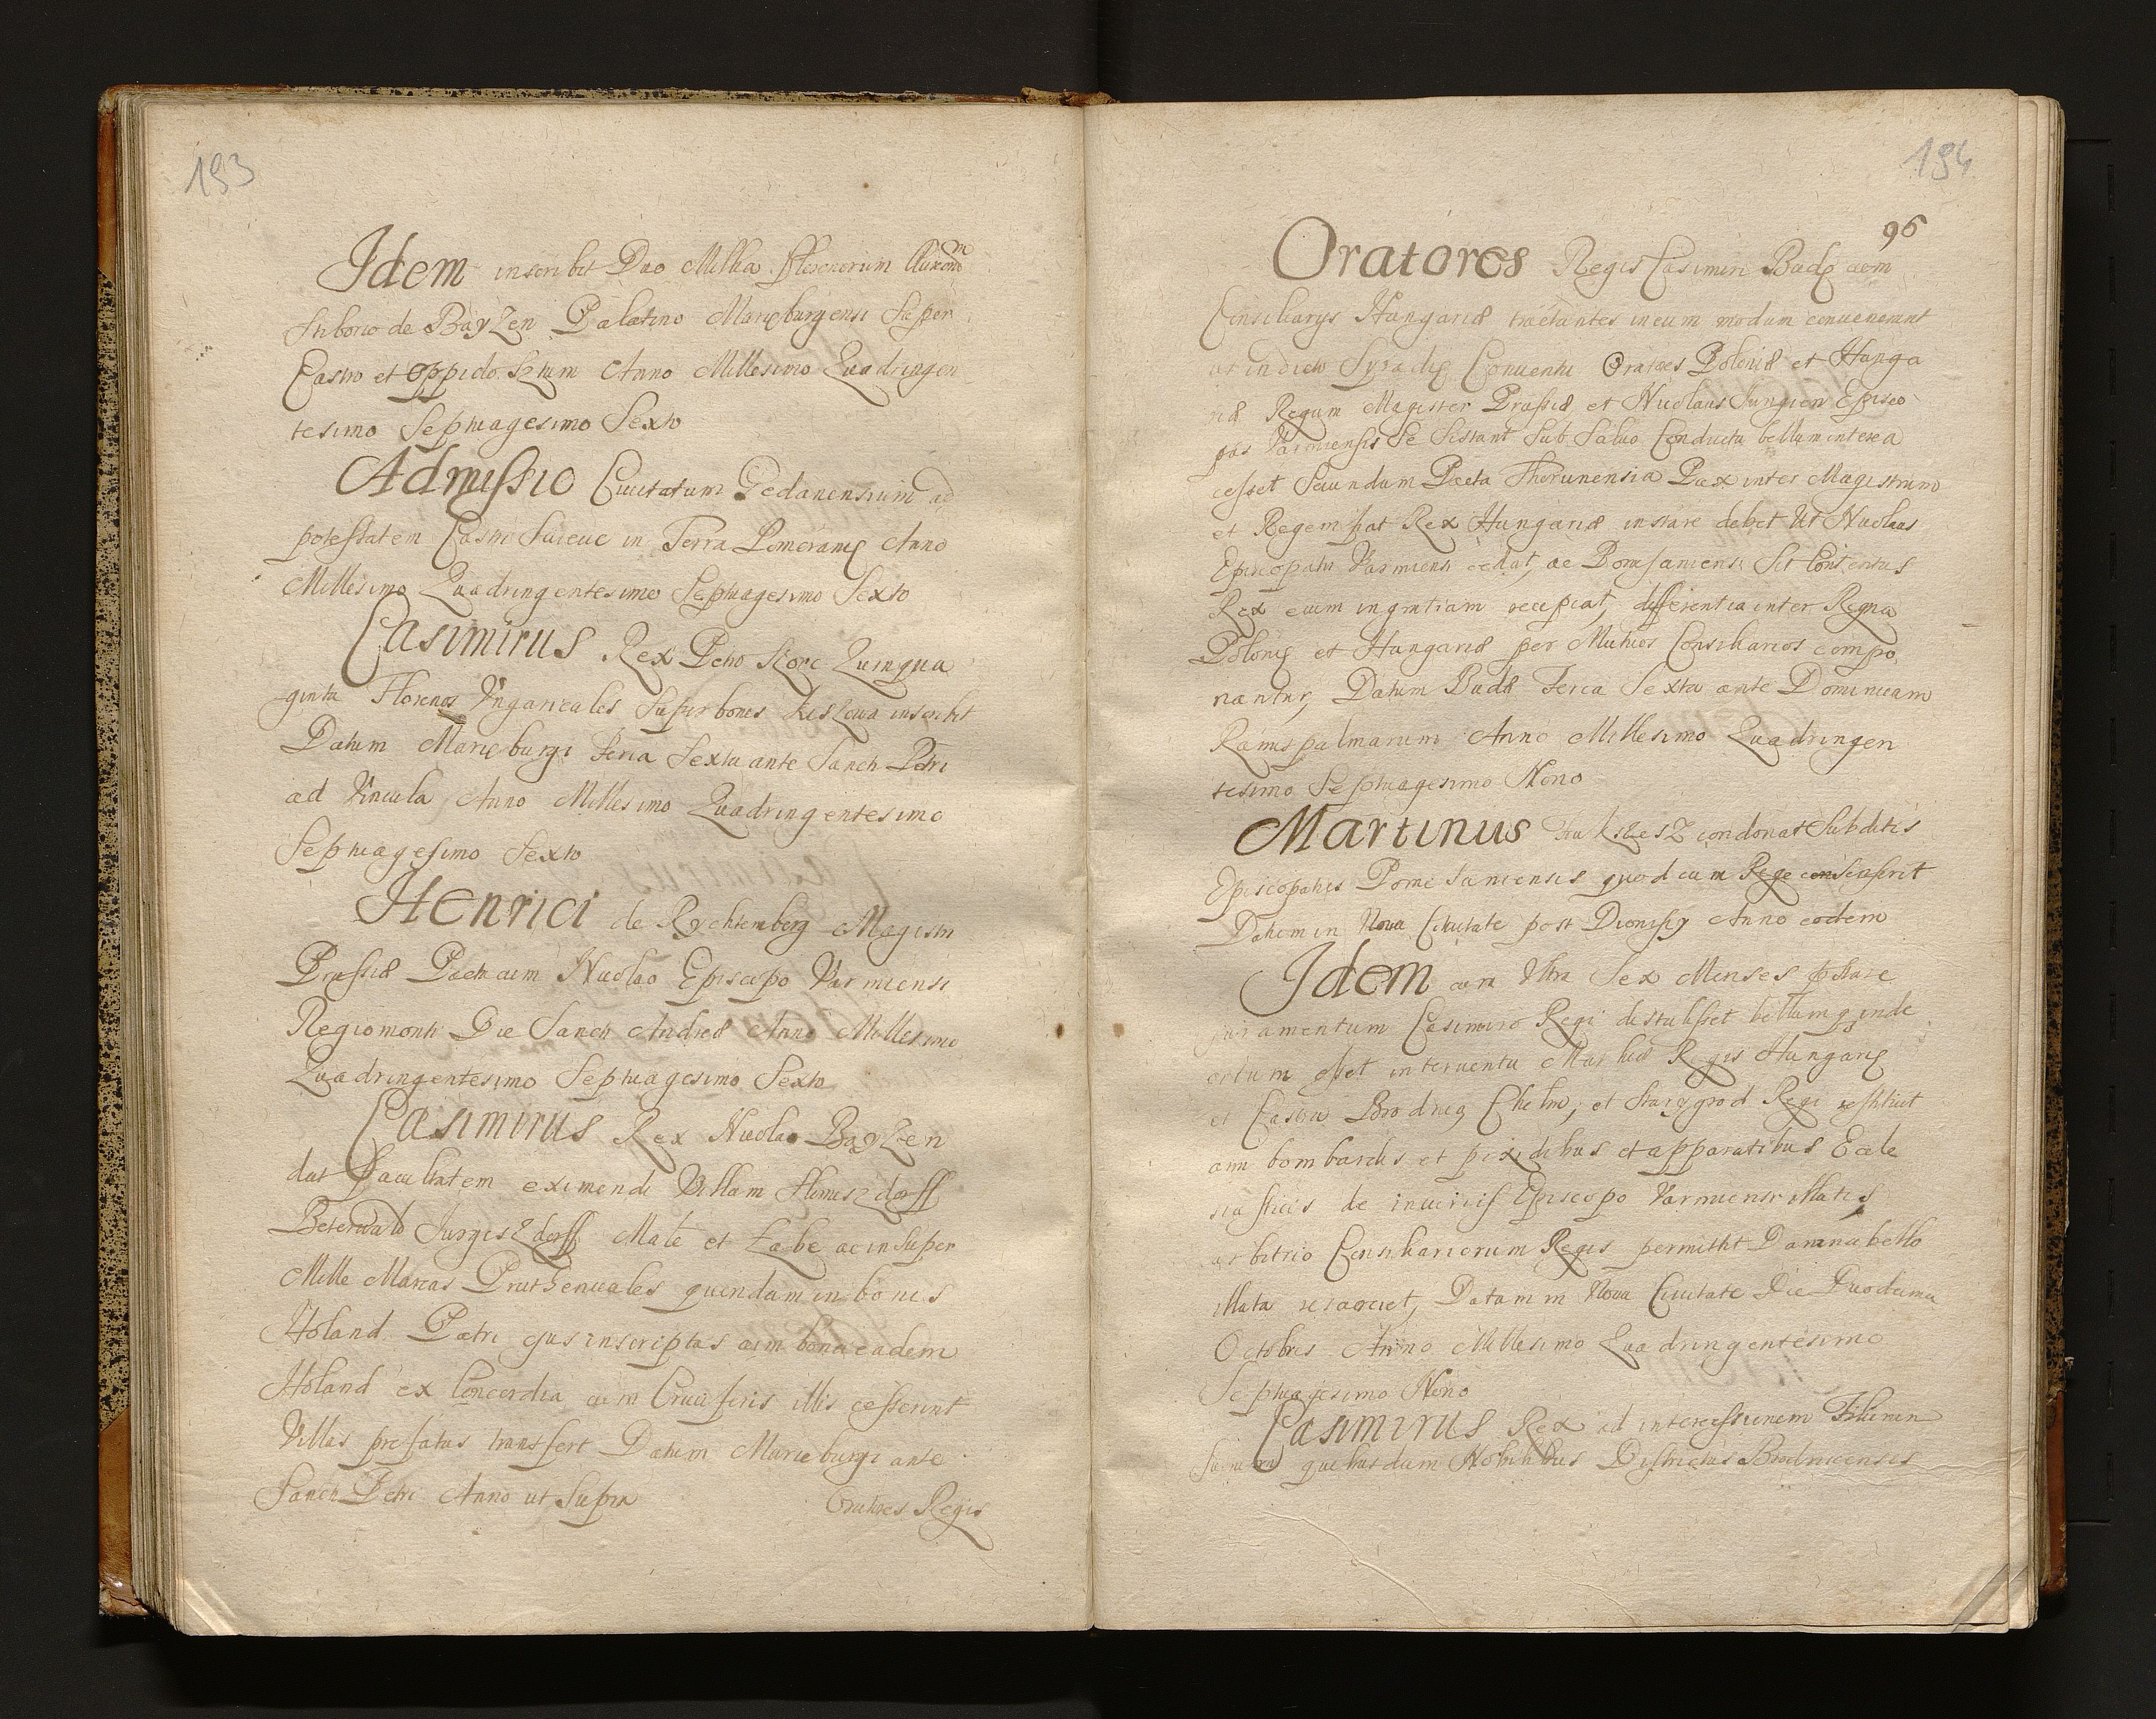 193
Idem inscribit Duo Millia Florenorum Auro
Stiborio de Bayzen Palatino Marieburgensi Super
Castro et Oppido Sztum Anno Millesimo Quadringen
tesimo Septuagesimo Sexto
Admissio Civitatum Gedanensium ad
potestatem Castri in Terra Pomeranię Anno
Millesimo Quadringentesimo Septuagesimo Sexto
Casimirus Rex Petro Skorc Quinqua
ginta Florenos Vngaricales Super bonis inscribit
Datum Marieburgi Feria Sexta ante Sancti Petri
ad Vincula Anno Millesimo Quadringentesimo
Septuagesimo Sexto
Henrici de Rychtemberg Magistri
Prussiæ Pacta cum Nicolao Episcopo Varmiensi
Regiomonti Die Sancti Andreæ Anno Millesimo
Quadringentesimo Septuagesimo Sexto
Casimirus Rex Nicolao Bayzen
dat Facultatem eximendi Villam
Jurgiszdorff Male et Labe ac insuper
Mille Marcas Pruthenicales quendam in bonis
Holand Patri ejus inscriptas cum bona eadem
Holand ex Concordia cum Cruciferis illis cesserint
Villas præfatas transfert Datum Marieburgi ante
Sancti Petri Anno ut Supra
Oratores Regis
194
96
Oratores Regis Casimiri Budę cum
Consiliarys Hungariæ tractantes in eum modum convenerunt
ut indicto Syradię Conventu Oratores Poloniæ et Hunga
riæ Regum Magister Prussiæ et Nicolaus Tungien Episco
pus Varmiensis Se Sistant Sub Salvo Conductu bellum interea
cesset Secundum Pacta Thorunensia Pax inter Magistrum
et Regem fiat Rex Hungariæ instare debet Ut Nicolaus
Episcopatu Varmiensi cedat, ac Pomesaniensi Sit Contentus
Rex eum in gratiam recipiat, differentia inter Regna
Polonię et Hungariæ per Mutuos Consiliarios compo
nantur, Datum Budæ Feria Sexta ante Dominicam
Ramispalmarum Anno Millesimo Quadringen
tesimo Septuagesimo Nono
Martinus Truksess condonat Subditis
Episcopatus Pomesaniensis quod cum Rege consenserit
Datum in Nova Civitate post Dionisy Anno eodem
Idem cum Ultra Sex Menses pstare
juramentum Casimiro Regi distulisset bellumq inde
ortum esset interventu Mathiæ Regis Hungarię
et Castra Brodnią Chelm, et Starygrod Regi restituit
cum bombardis et pixidibus et apparatibus Eccle
siasticis de injuriis Episcopo Varmiensi illatis
arbitrio Consiliariorum Regis permittit Damna bello
illata resarciet, Datam in Nova Civitate Die Duodecima
Octobris Anno Millesimo Quadringentesimo
Septuagesimo Nono
Casimirus Rex ad intercessionem
quibusdam Nobilibus Districtus Brodnicensis